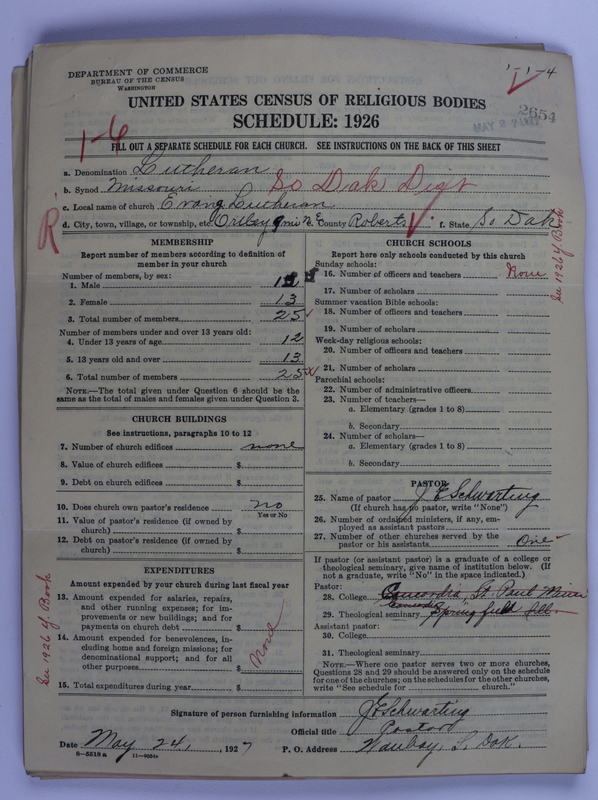 DEPARTMENT OF COMMERCE
BUREAU OF THE CENSUS
WASHINGTON
1-1-4
UNITED STATES CENSUS OF RELIGIOUS BODIES
SCHEDULE: 1926
2654
MAY 2
1-6
FILL OUT A SEPARATE SCHEDULE FOR EACH CHURCH. SEE INSTRUCTIONS ON THE BACK OF THIS SHEET
a. Denomination Lutheran
b. Synod Missouri So Dak Dist
c. Local name of church Evang Lutheran
d. City, town, village, or township, etc. Ortley 9 mi N.E. County Roberts f. State So Dak
R
MEMBERSHIP
Report number of members according to definition of
member in your church
Number of members, by sex:
1. Male 12
2. Female 13
3. Total number of members 25
Number of members under and over 13 years old:
4. Under 13 years of age 12
5. 13 years old and over 13
6. Total number of members 25
NOTE.—The total given under Question 6 should be the
same as the total of males and females given under Question 3.
CHURCH BUILDINGS
See instructions, paragraphs 10 to 12
7. Number of church edifices none
8. Value of church edifices $
9. Debt on church edifices $
10. Does church own pastor's residence no
Yes or No
11. Value of pastor's residence (if owned by
church) $
12. Debt on pastor's residence (if owned by
church) $
EXPENDITURES
Amount expended by your church during last fiscal year
13. Amount expended for salaries, repairs,
and other running expenses; for im-
provements or new buildings; and for
payments on church debt $
14. Amount expended for benevolences, in-
cluding home and foreign missions; for
denominational support; and for all
other purposes $
None
15. Total expenditures during year $
See 1926 of Book
CHURCH SCHOOLS
Report here only schools conducted by this church
Sunday schools:
16. Number of officers and teachers None
17. Number of scholars
Summer vacation Bible schools:
18. Number of officers and teachers
19. Number of scholars
Week-day religious schools:
20. Number of officers and teachers
21. Number of scholars
Parochial schools:
22. Number of administrative officers
23. Number of teachers—
a. Elementary (grades 1 to 8)
b. Secondary
24. Number of scholars—
a. Elementary (grades 1 to 8)
b. Secondary
See 1926 of Book
PASTOR
25. Name of pastor J E Schwarting
(If church has no pastor, write "None")
26. Number of ordained ministers, if any, em-
ployed as assistant pastors
27. Number of other churches served by the
pastor or his assistants One
If pastor (or assistant pastor) is a graduate of a college or
theological seminary, give name of institution below. (If
not a graduate, write "No" in the space indicated.)
Pastor:
28. College Concordia, St. Paul Minn
29. Theological seminary Concordia Springfield Ill.
Assistant pastor:
30. College
31. Theological seminary
NOTE.—Where one pastor serves two or more churches,
Questions 28 and 29 should be answered only on the schedule
for one of the churches; on the schedules for the other churches,
write "See schedule for church."
Signature of person furnishing information J E Schwarting
Official title Pastor
Date May 24, 1927 P. O. Address Waubay, S. Dak.
8-5518 a